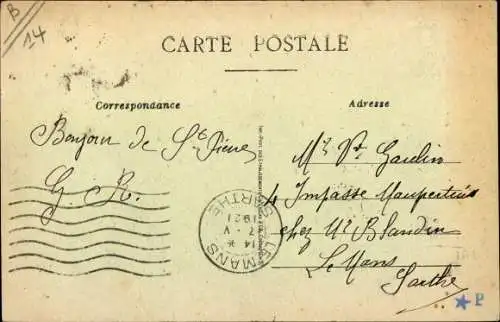 B
14
CARTE POSTALE
Correspondance
Adresse
Bonjour de Ste
G. R.
Mr Vr Gaulin
4 Impasse Maupertuis
chez Mr Blandin
Le Mans
Sarthe
LE MANS
SARTHE
14 H
7 - V
1921
P